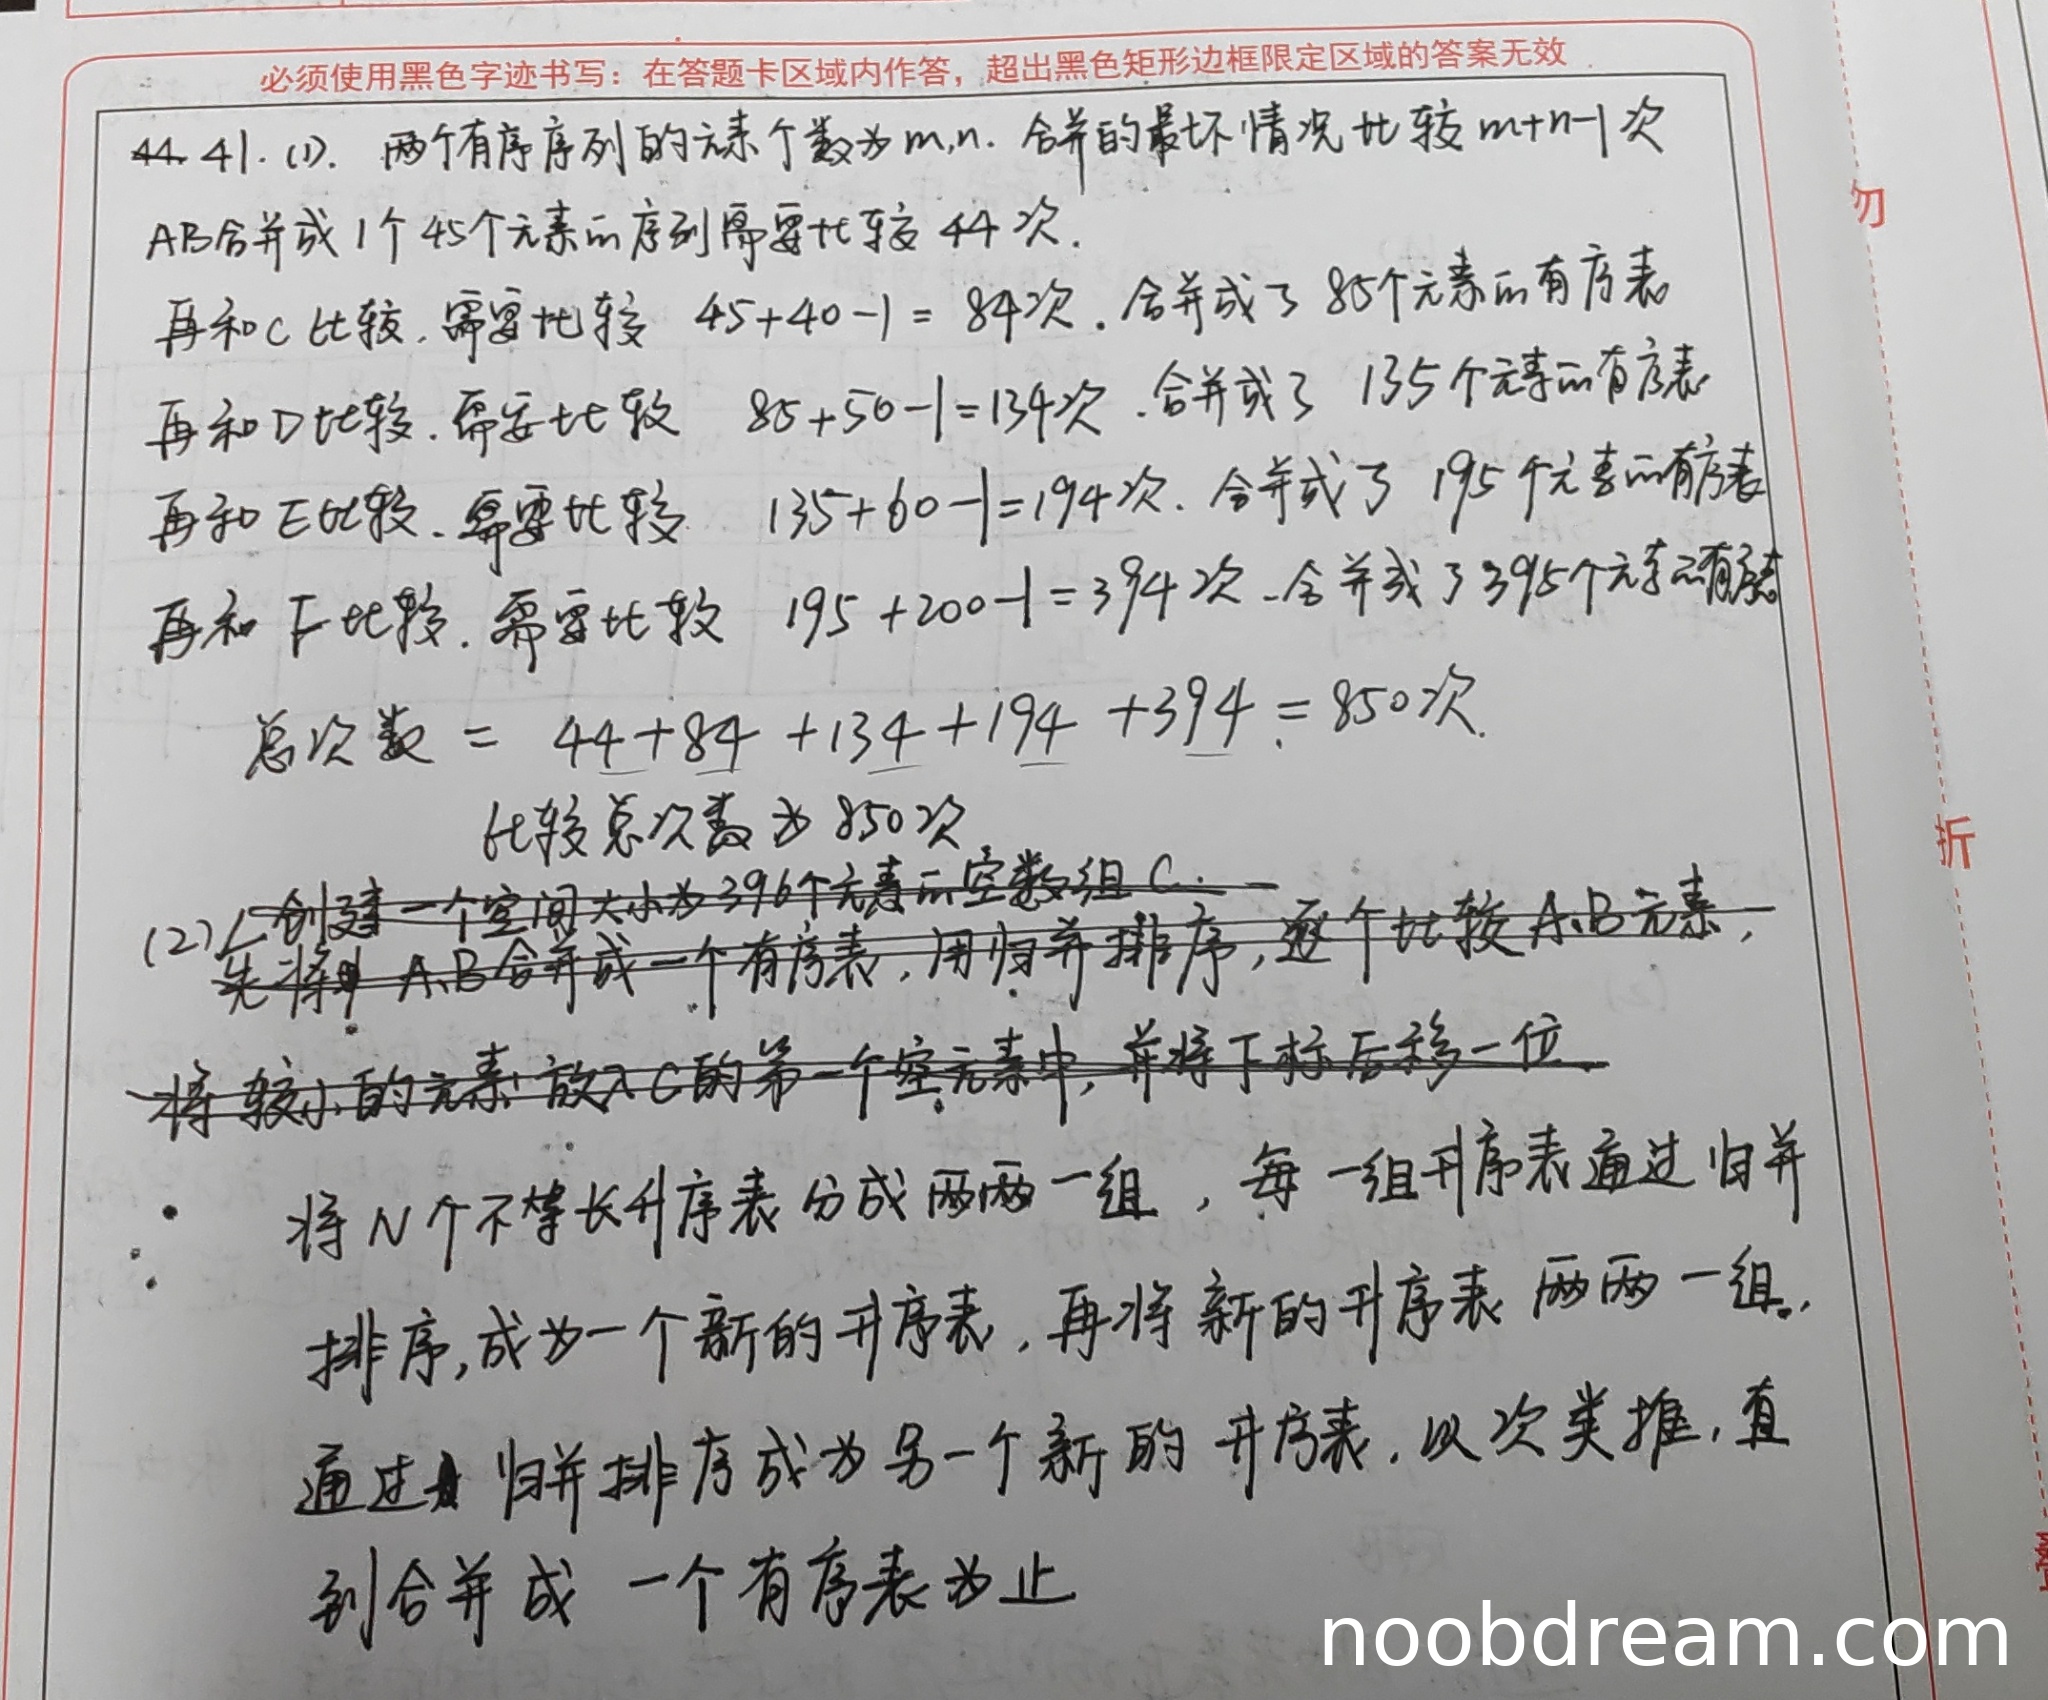 必须使用黑色字迹书写：在答题卡区域内作答，超出黑色矩形边框限定区域的答案无效
44. 41. (1). 两个有序序列的元素个数为m,n. 合并的最坏情况比较m+n-1次
AB合并成1个45个元素的序列需要比较44次.
再和C比较.需要比较 45+40-1= 84次. 合并成了85个元素的有序表
再和D比较.需要比较 85+50-1=134次.合并成了 135个元素的有序表
再和E比较.需要比较 135+60-1=194次.合并成了 195个元素的有序表
再和F比较.需要比较 195+200-1=394次.合并成了395个元素的有序表
总次数 = 44+84+134+194+394=850次.
比较总次数为850次
(2) 创建一个空间大小为396个元素的空数组C.
先将 A、B合并成一个有序表,用归并排序,逐个比较A、B元素,
将较小的元素放入C的第一个空元素中,并将下标后移一位
将N个不等长升序表分成两两一组,每一组升序表通过归并
排序,成为一个新的升序表,再将新的升序表两两一组.,
通过归并排序成为另一个新的升序表.以次类推,直
到合并成一个有序表为止
勿
折
noobdream.com